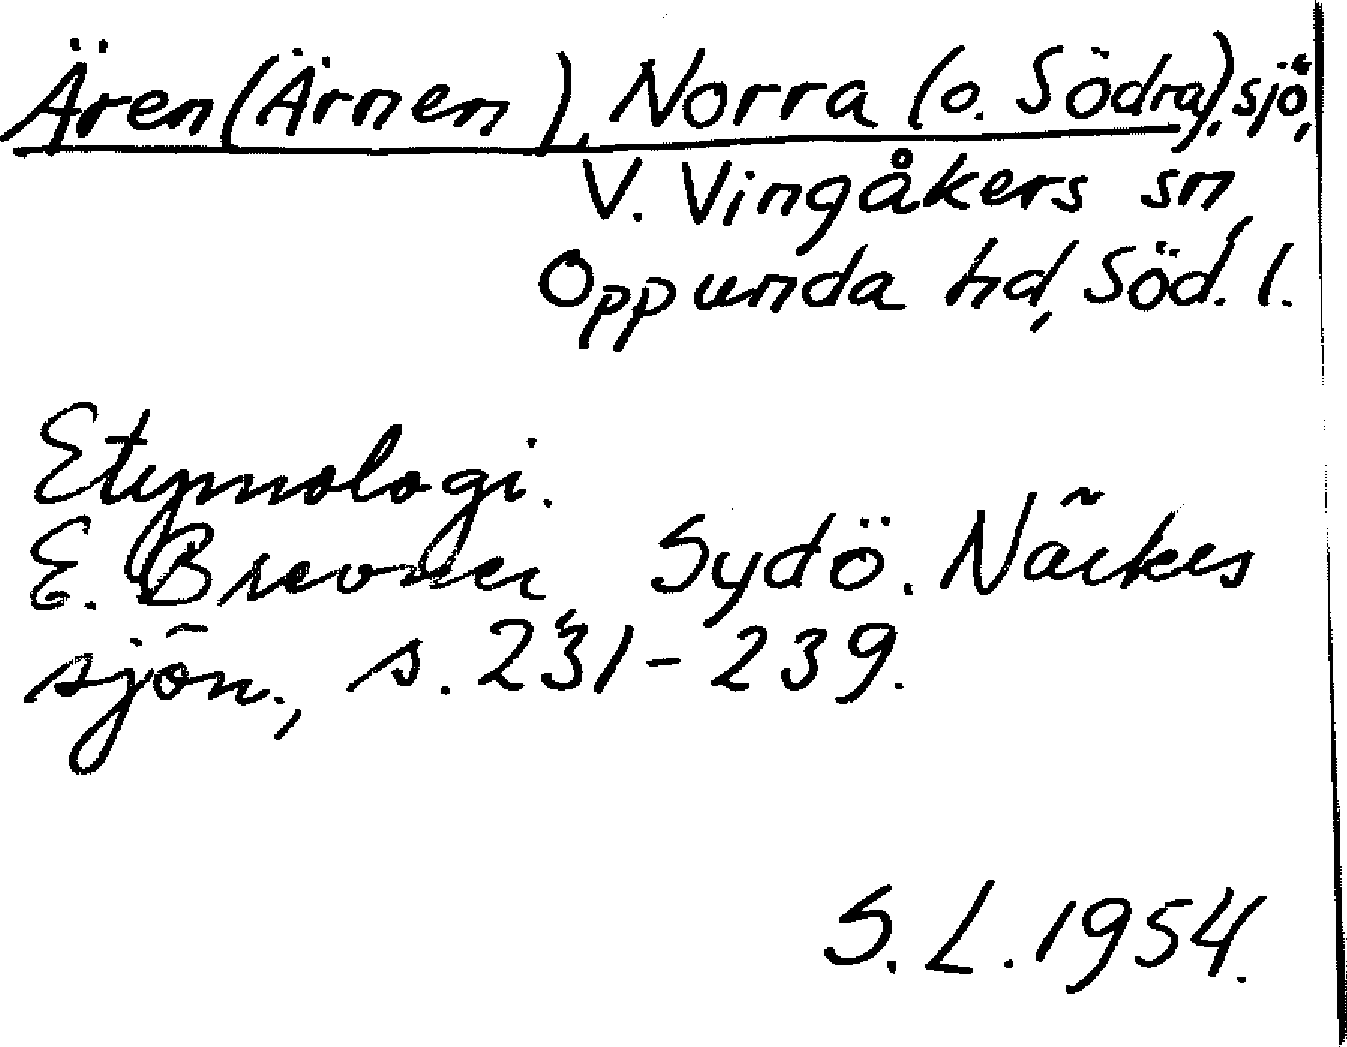 Ären (Ärnen), Norra (o. Södra), sjö,
V. Vingåkers sn,
Oppunda hd, Söd. l.
Etymologi.
E. Brevner, Sydö. Närkes
sjön., s. 231-239.
S. L. 1954.